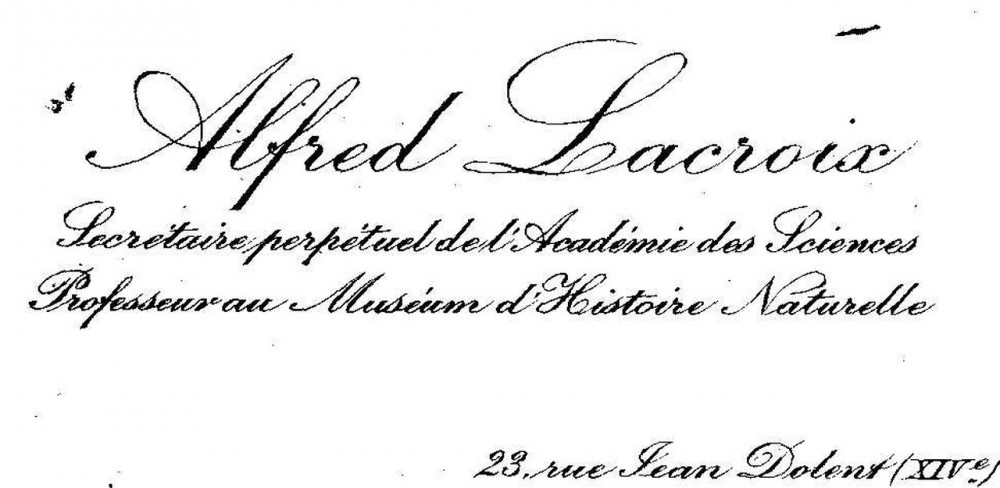 Alfred Lacroix
Secrétaire perpétuel de l'Académie des Sciences
Professeur au Muséum d'Histoire Naturelle
23, rue Jean Dolent (XIVe)